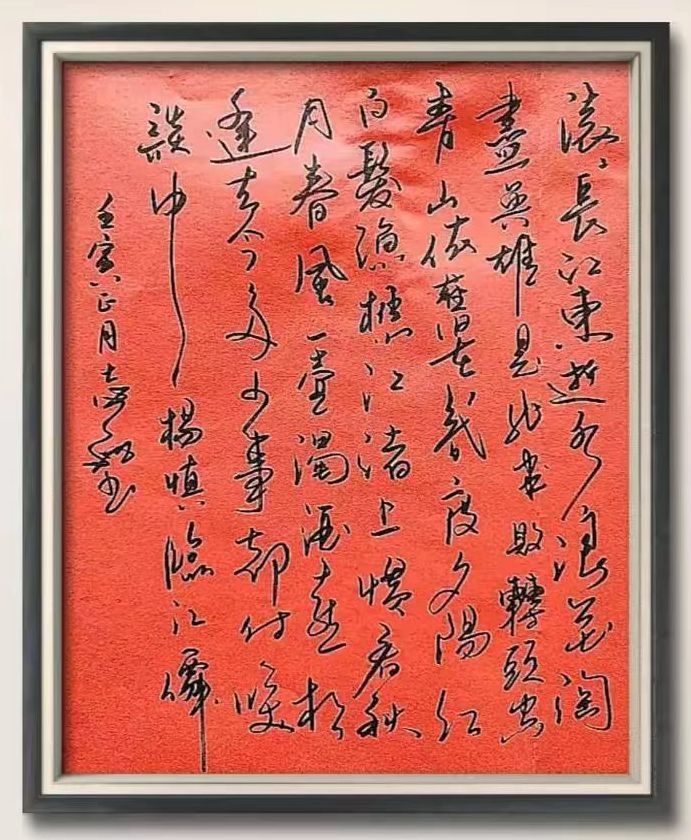 滚〻長江東逝水浪花淘
盡英雄是非成敗轉頭空
青山依舊在幾度夕陽红
白髮漁樵江渚上慣看秋
月春風一壺濁酒喜相
逢古今多少事都付笑
談中 楊慎臨江僊
壬寅正月书